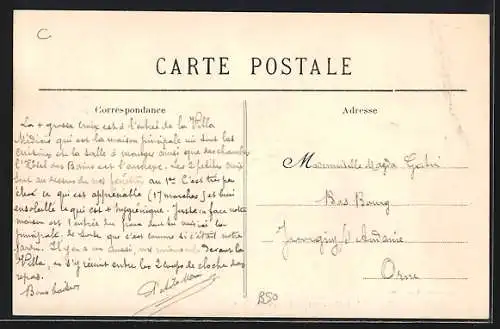 C
CARTE POSTALE
Correspondance
Adresse
La + grosse croix est à l'entrée de la Villa
qui est la maison principale où sont les
cuisines et la salle à manger ainsi que des chambres
l'Hôtel des Bains est l'annexe. Les 2 petites croix
sont au dessus de nos fenêtres au 1er C'est très peu
élevé ce qui est appréciable (17 marches) et bien
ensoleillé ce qui est + hygiénique. Juste en face notre
maison est l'entrée du
principale, de sorte que c'est comme si c'était notre
jardin. Il y en a un aussi, devant la
Villa, on s'y réunit entre les 2 coups de cloche des
repas.
Bons baisers
Mademoiselle Magda
Bas Bourg
Juvigny s/ Andaine
Orne
B50